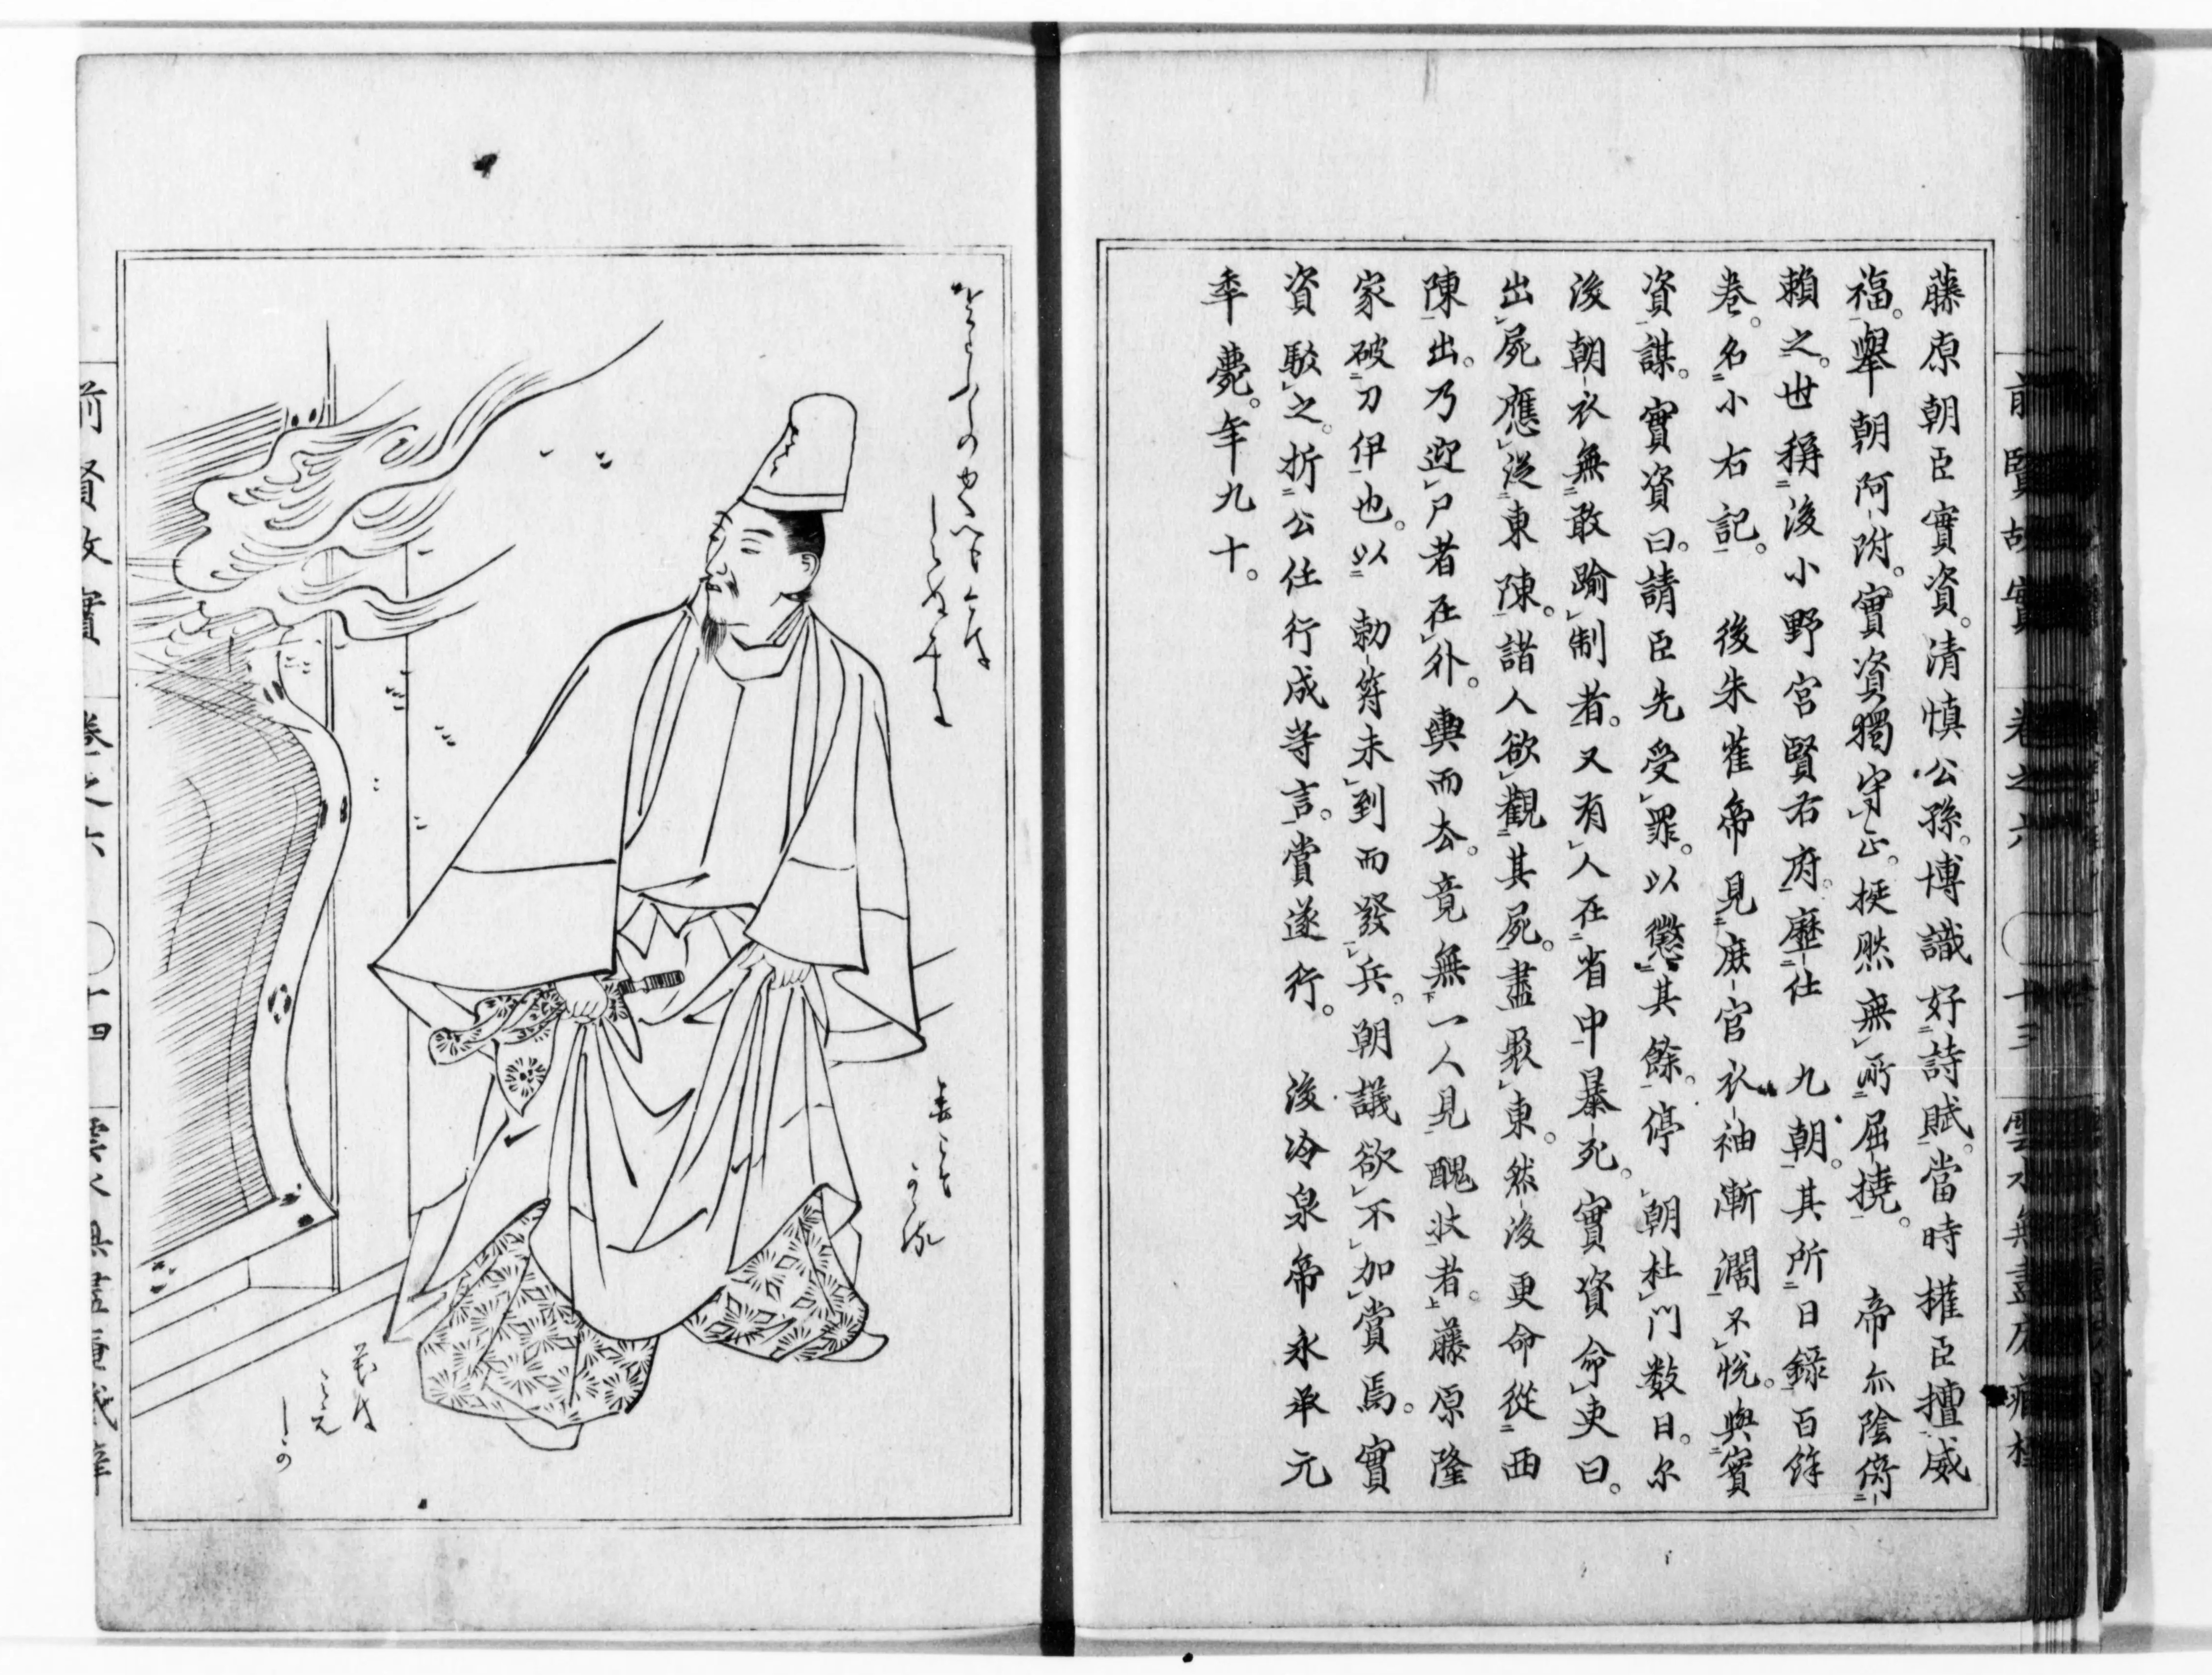 前賢故實 卷之六 十三 雲水無盡庵藏
藤原朝臣實資。清慎公孫。博識好詩賦。當時權臣擅威
福。舉朝阿附。實資獨守正。挺然無所屈撓。 帝亦陰倚
賴之。世稱後小野宮賢右府。歷仕 九朝。其所日錄百餘
卷。名小右記。 後朱雀帝見庶官衣袖漸濶不悅。與實
資謀。實資曰。請臣先受罪。以懲其餘。停 朝杜門數日。尓
後朝衣無敢踰制者。又有人在省中暴死。實資命吏曰。
出屍應從東陳。諸人欲觀其屍。盡聚東。然後更命從西
陳出。乃迎尸者在外。輿而去。竟無一人見醜狀者。藤原隆
家破刀伊也。以 勅符未到而發兵。朝議欲不加賞焉。實
資駁之。折公任行成等言。賞遂行。 後冷泉帝永承元
年薨。年九十。
前賢故實 卷之六 十四